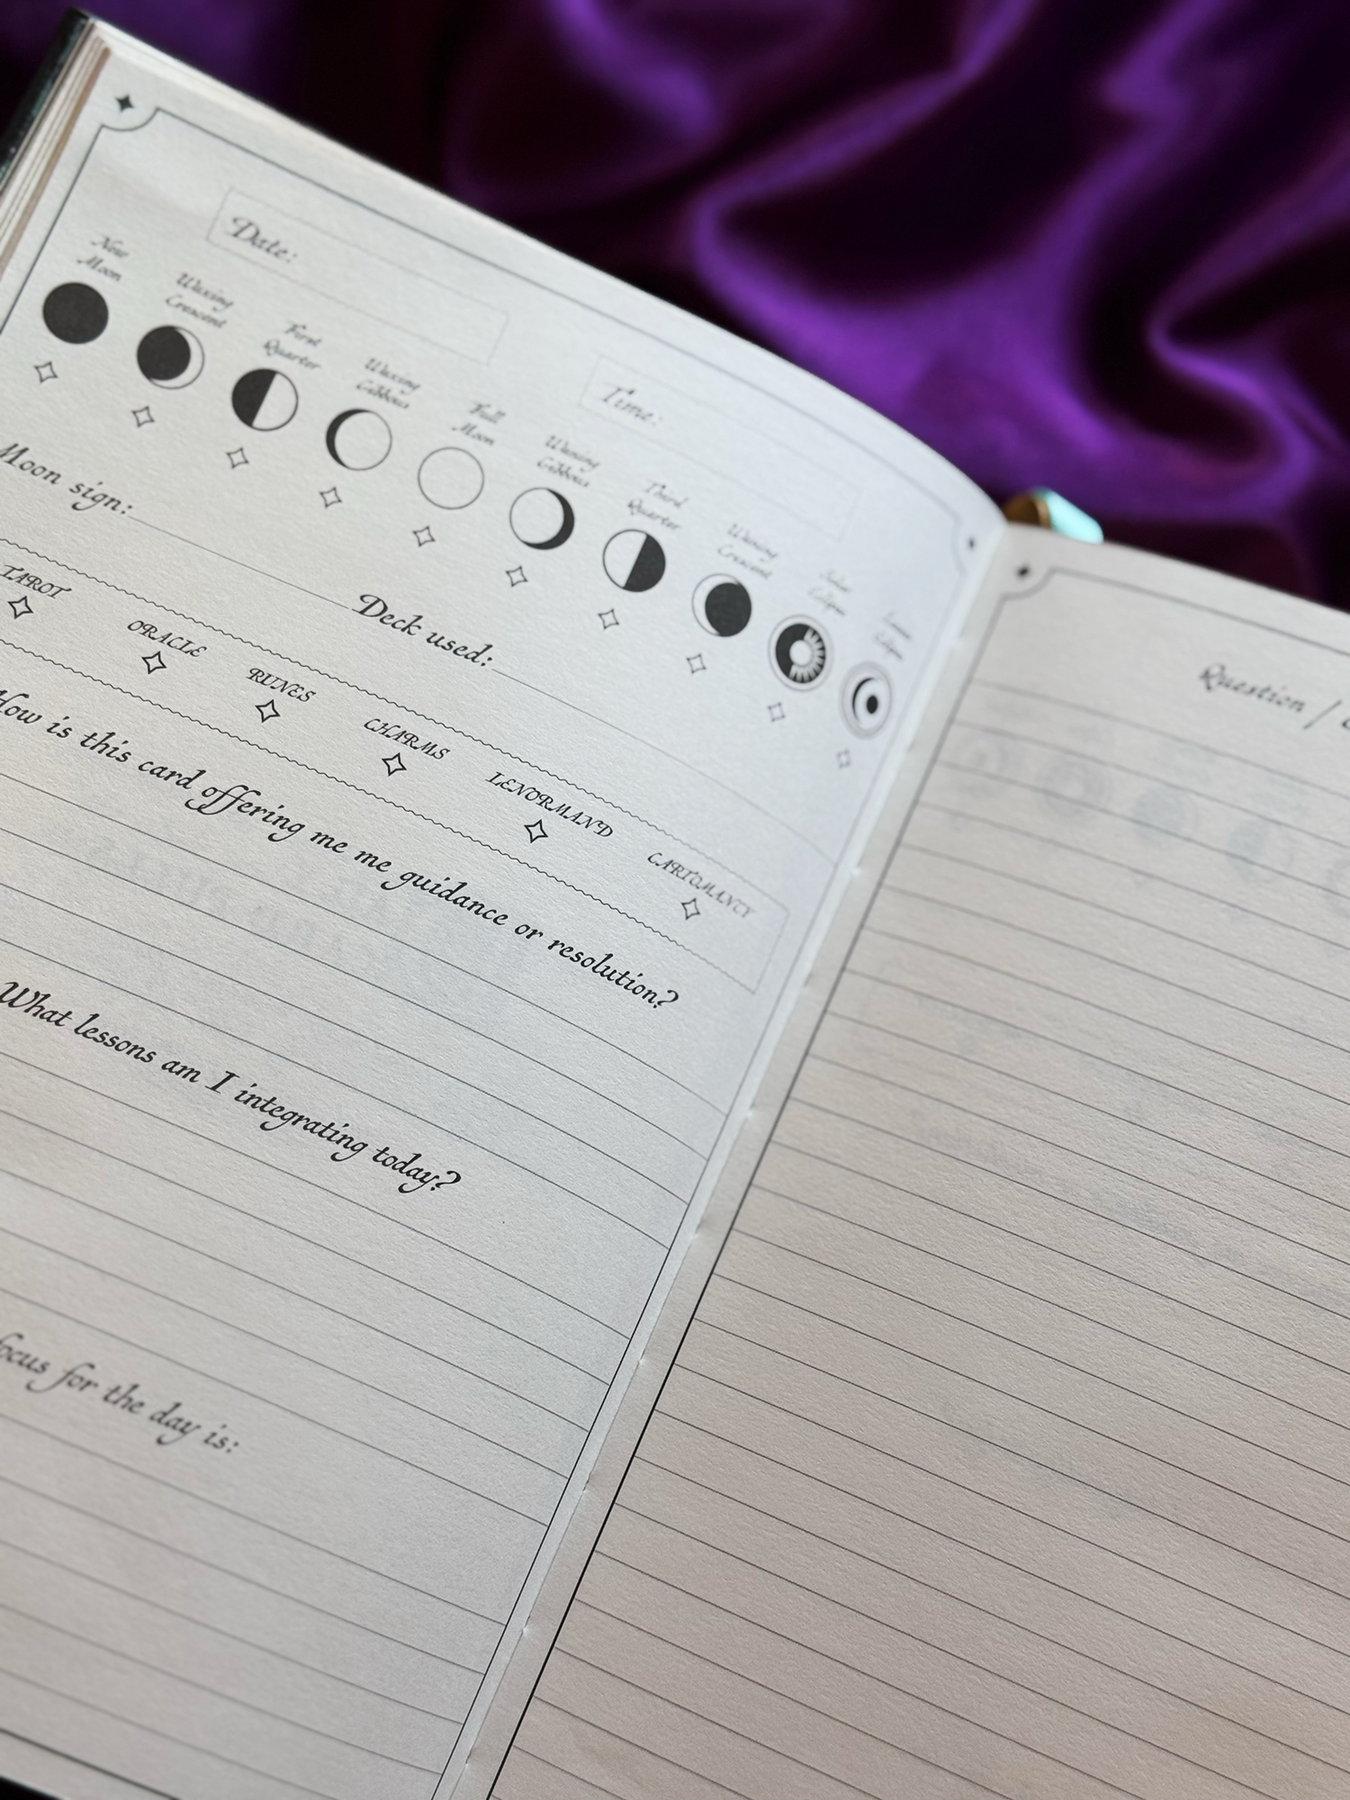 Date:
Time:
New Moon
Waxing Crescent
First Quarter
Waxing Gibbous
Full Moon
Waning Gibbous
Third Quarter
Waning Crescent
Solar Eclipse
Lunar Eclipse
Moon sign:
Deck used:
TAROT
ORACLE
RUNES
CHARMS
LENORMAND
CARTOMANCY
How is this card offering me me guidance or resolution?
What lessons am I integrating today?
focus for the day is:
Question /